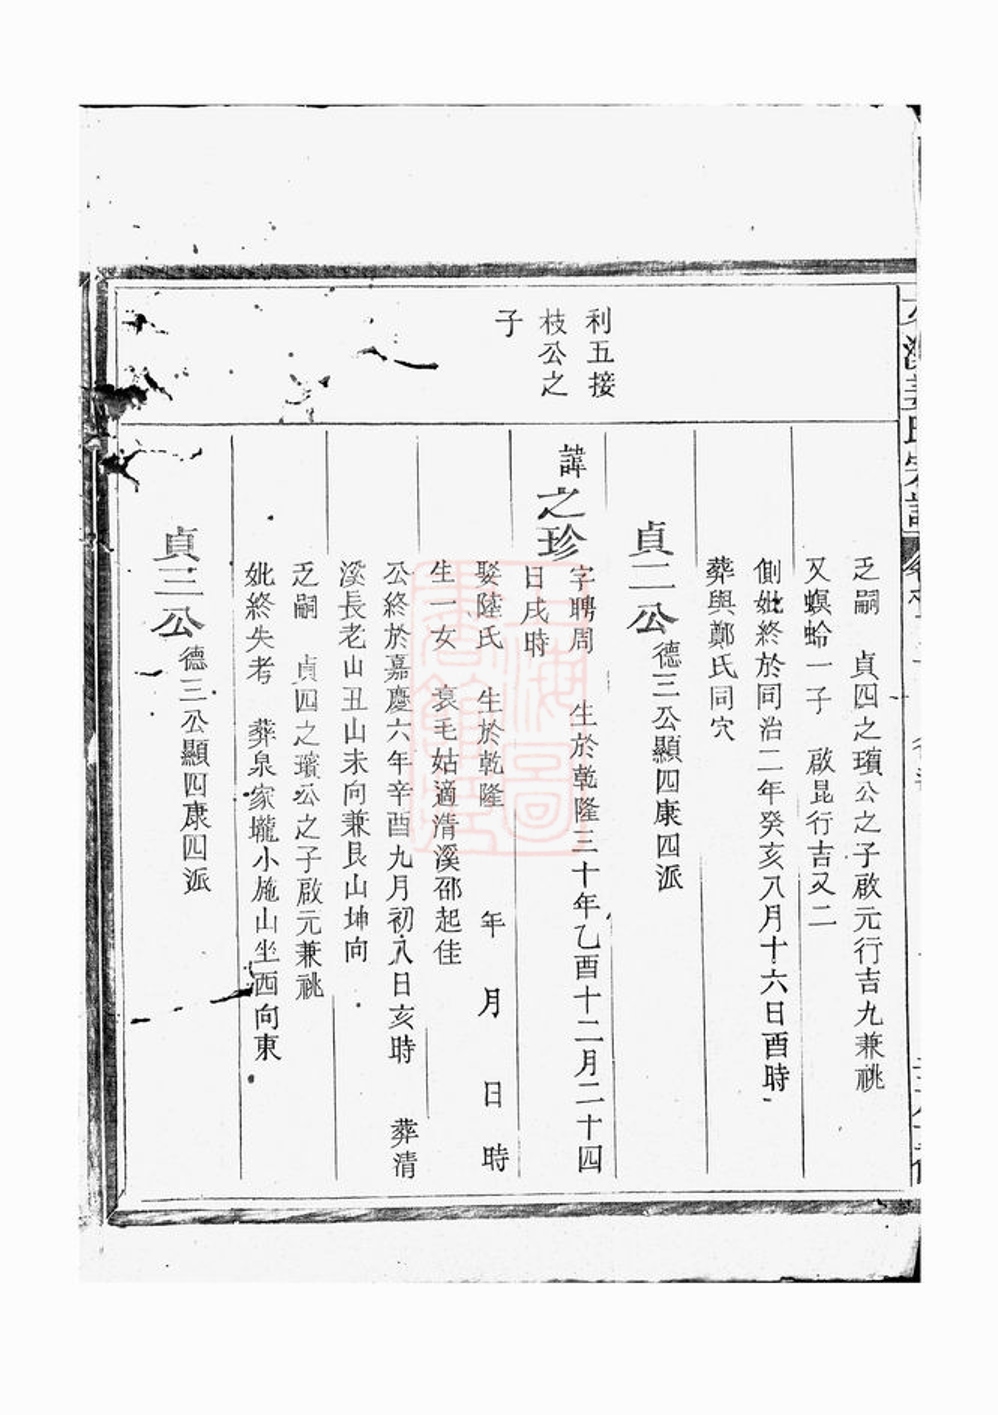 姜氏宗譜
乏嗣　貞四之璸公之子啟元行吉九兼祧
又螟蛉一子　啟昆行吉又二
側妣終於同治二年癸亥八月十六日酉時
葬與鄭氏同穴
貞二公德三公顯四康四派
利五接
枝公之
子
諱之珍
字聘周　生於乾隆三十年乙酉十二月二十四
日戌時
娶陸氏　生於乾隆　年　月　日　時
生一女　衰毛姑適清溪邵起佳
公終於嘉慶六年辛酉九月初八日亥時　葬清
溪長老山丑山未向兼艮山坤向
乏嗣　貞四之璸公之子啟元兼祧
妣終失考　葬泉家壠小施山坐西向東
貞三公德三公顯四康四派
上海圖書館藏